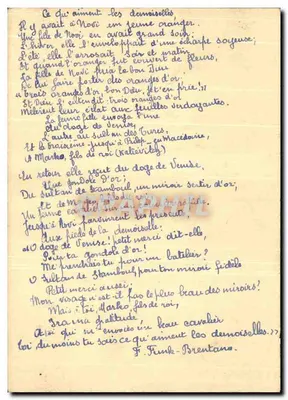 Ce qu'aiment les demoiselles
Il y avait à Novi un jeune oranger.
Une fille de Novi en avait grand soin;
L'hiver, elle l'enveloppait d'une écharpe soyeuse;
L'été, elle l'arrosait soir et matin
Et quand l'oranger fut couvert de fleurs,
La fille de Novi pria le bon Dieu
De lui faire porter des oranges d'or.
Et Dieu l'entendit: trois oranges d'or
Mêlèrent leur éclat aux feuilles verdoyantes.
La jeune fille envoya l'une
Au doge de Venise,
L'autre au sultan des Turcs,
Et la troisième jusqu'à en Macédoine,
A Marko, fils de roi
En retour elle reçut du doge de Venise,
Une gondole d'or!
Du sultan de Stamboul, un miroir serti d'or,
Et de
Un jeune
Jusqu'à Novi parvinrent les présents
Aux pieds de la demoiselle:
"O doge de Venise, petit merci dit-elle,
Pour ta gondole d'or!
Me prendrais-tu pour un batelier?
O sultan de Stamboul, pour ton miroir fidèle
Petit merci aussi;
Mon visage n'est-il pas le plus beau des miroirs?
Mais à toi, Marko, fils de roi,
Ira ma gratitude
A toi qui m'envoies un beau cavalier
Toi du moins tu sais ce qu'aiment les demoiselles."
F. Funk-Brentano.